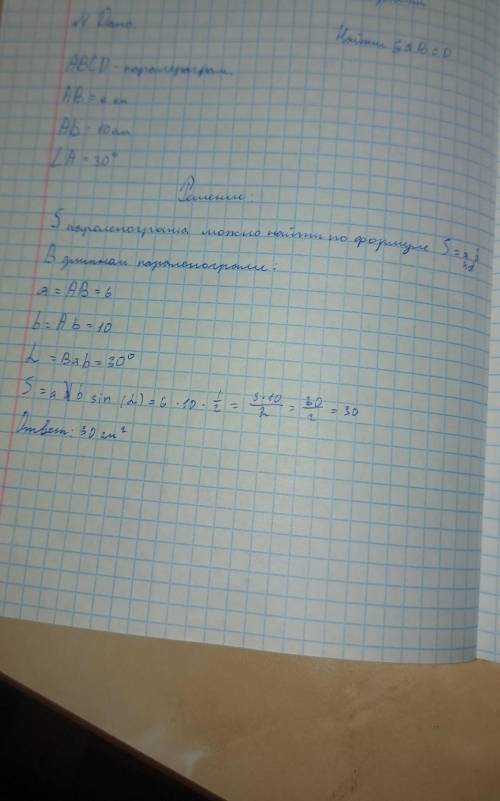 Дано.
Найти SABCD
ABCD - паралерограм.
AB = 6 см
Ab = 10 см
∠A = 30°
Решение:
S паралелограма можно найти по формуле S = a b
В данном паралелограме:
a = AB = 6
b = Ab = 10
L = BAb = 30°
S = a b sin (L) = 6 · 10 · 1/2 = 6·10/2 = 60/2 = 30
Ответ: 30 см²